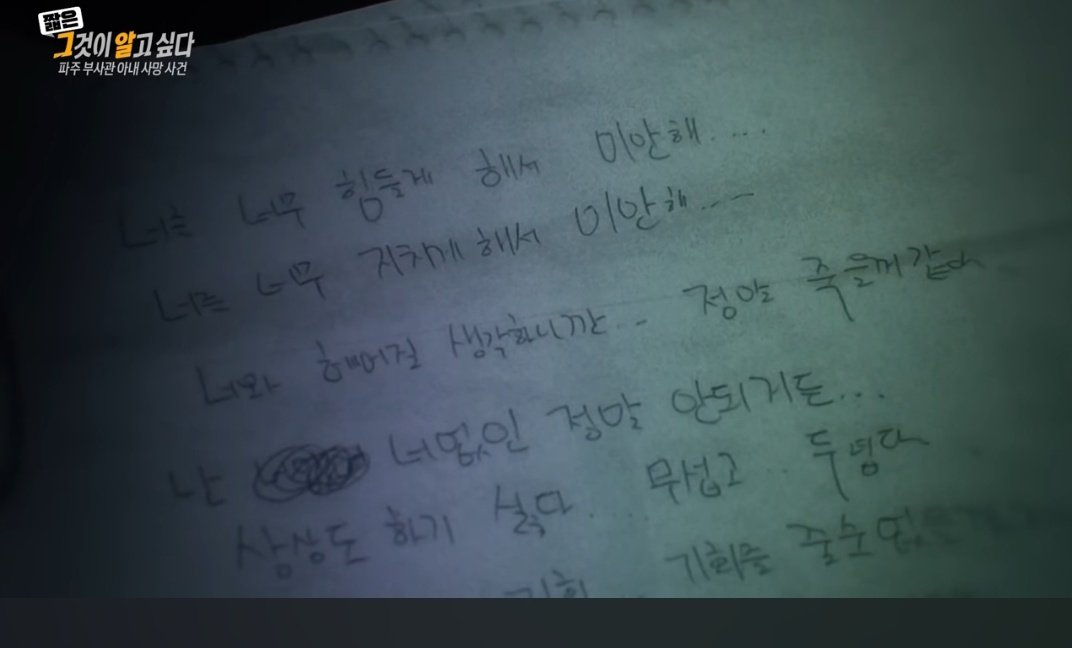 짧은
그것이 알고싶다
파주 부사관 아내 사망 사건
너를 너무 힘들게 해서 미안해....
너를 너무 지치게 해서 미안해...
너와 헤어질 생각하니깐.. 정말 죽을꺼같다
난 너없인 정말 안되거든...
상상도 하기 싫다... 무섭고.. 두렵다
기회... 기회를 줄수없